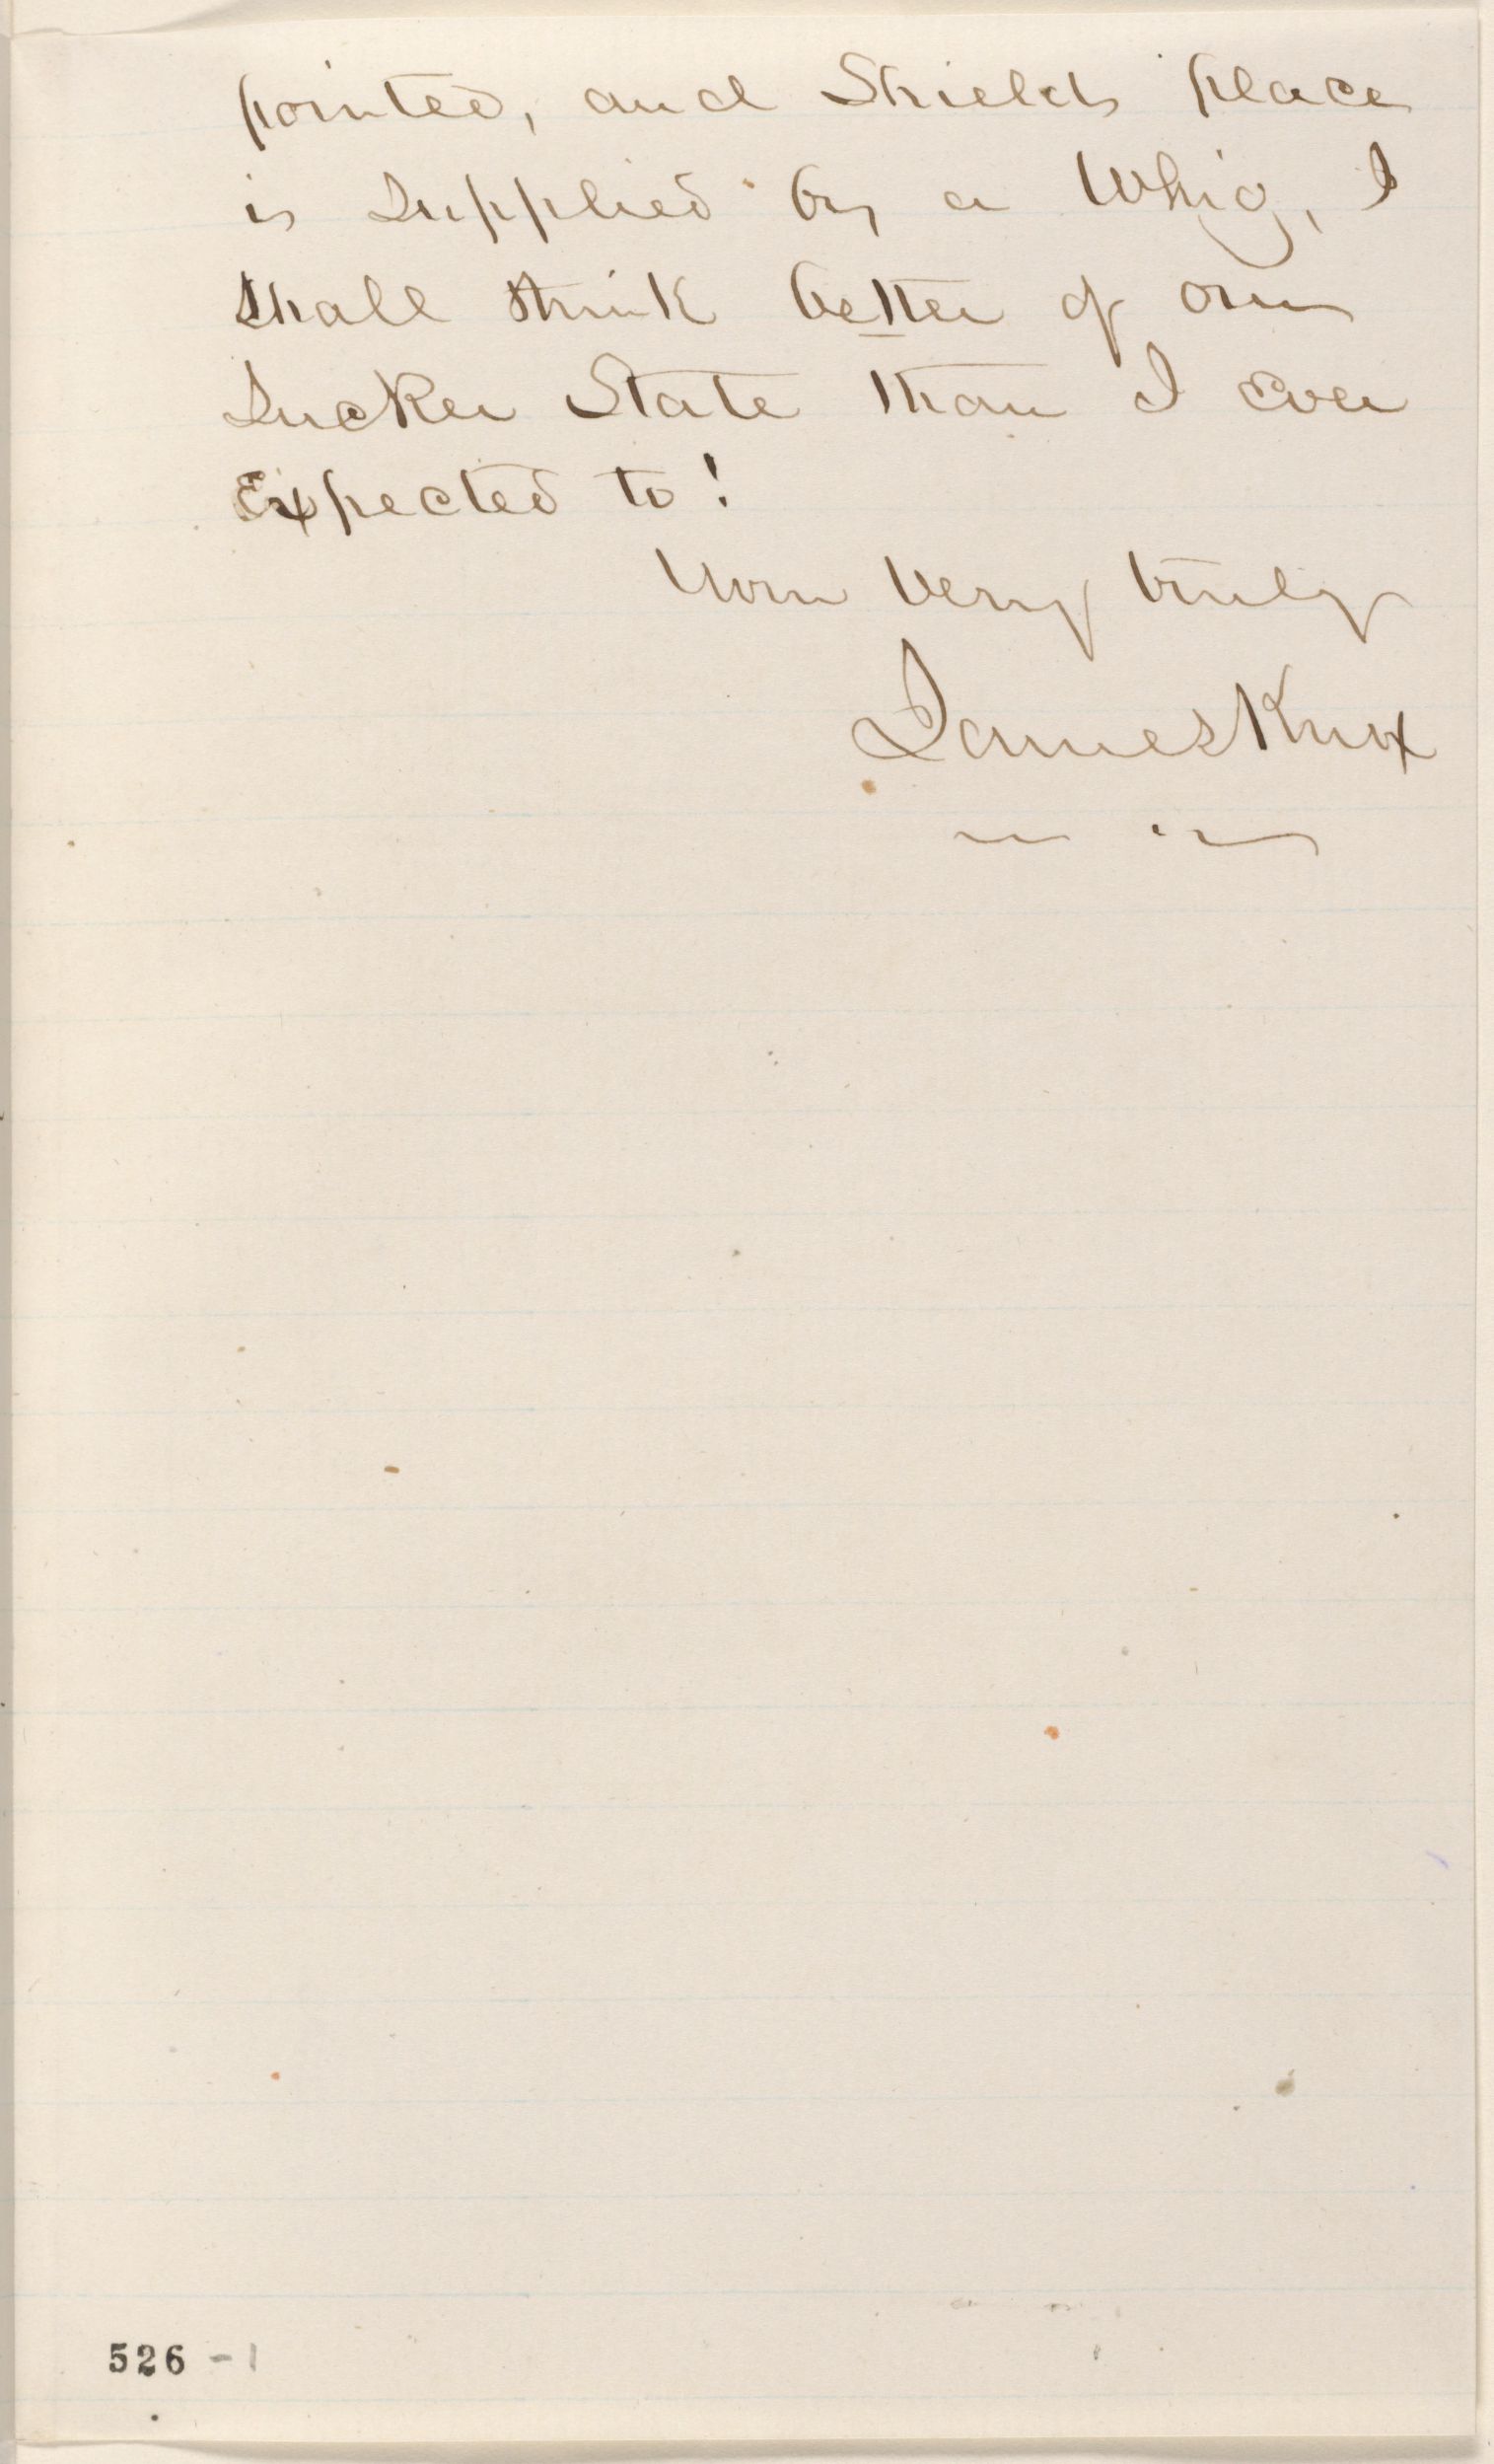 pointed, and Shields place
is supplied by a Whig, I
shall think better of our
Sucker State than I ever
expected to!
Your Very truly
James Knox
526 - 1